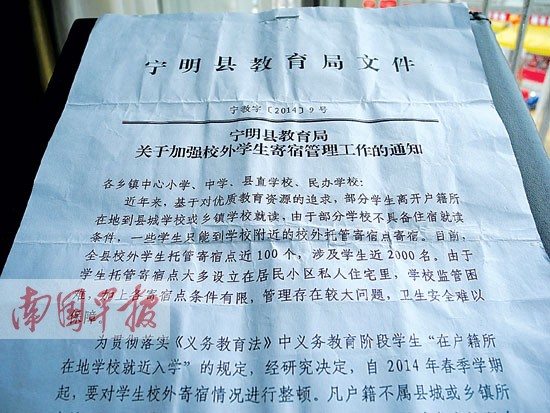 宁明县教育局文件
宁教字〔2014〕9号
宁明县教育局
关于加强校外学生寄宿管理工作的通知
各乡镇中心小学、中学、县直学校、民办学校：
近年来，基于对优质教育资源的追求，部分学生离开户籍所
在地到县城学校或乡镇学校就读，由于部分学校不具备住宿就读
条件，一些学生只能到学校附近的校外托管寄宿点寄宿。目前，
全县校外学生托管寄宿点近100个，涉及学生近2000名。由于
学生托管寄宿点大多设立在居民小区私人住宅里，学校监管困
难，加上各寄宿点条件有限，管理存在较大问题，卫生安全难以
保障。
南国早报
为贯彻落实《义务教育法》中义务教育阶段学生“在户籍所
在地学校就近入学”的规定，经研究决定，自2014年春季学期
起，要对学生校外寄宿情况进行整顿。凡户籍不属县城或乡镇所